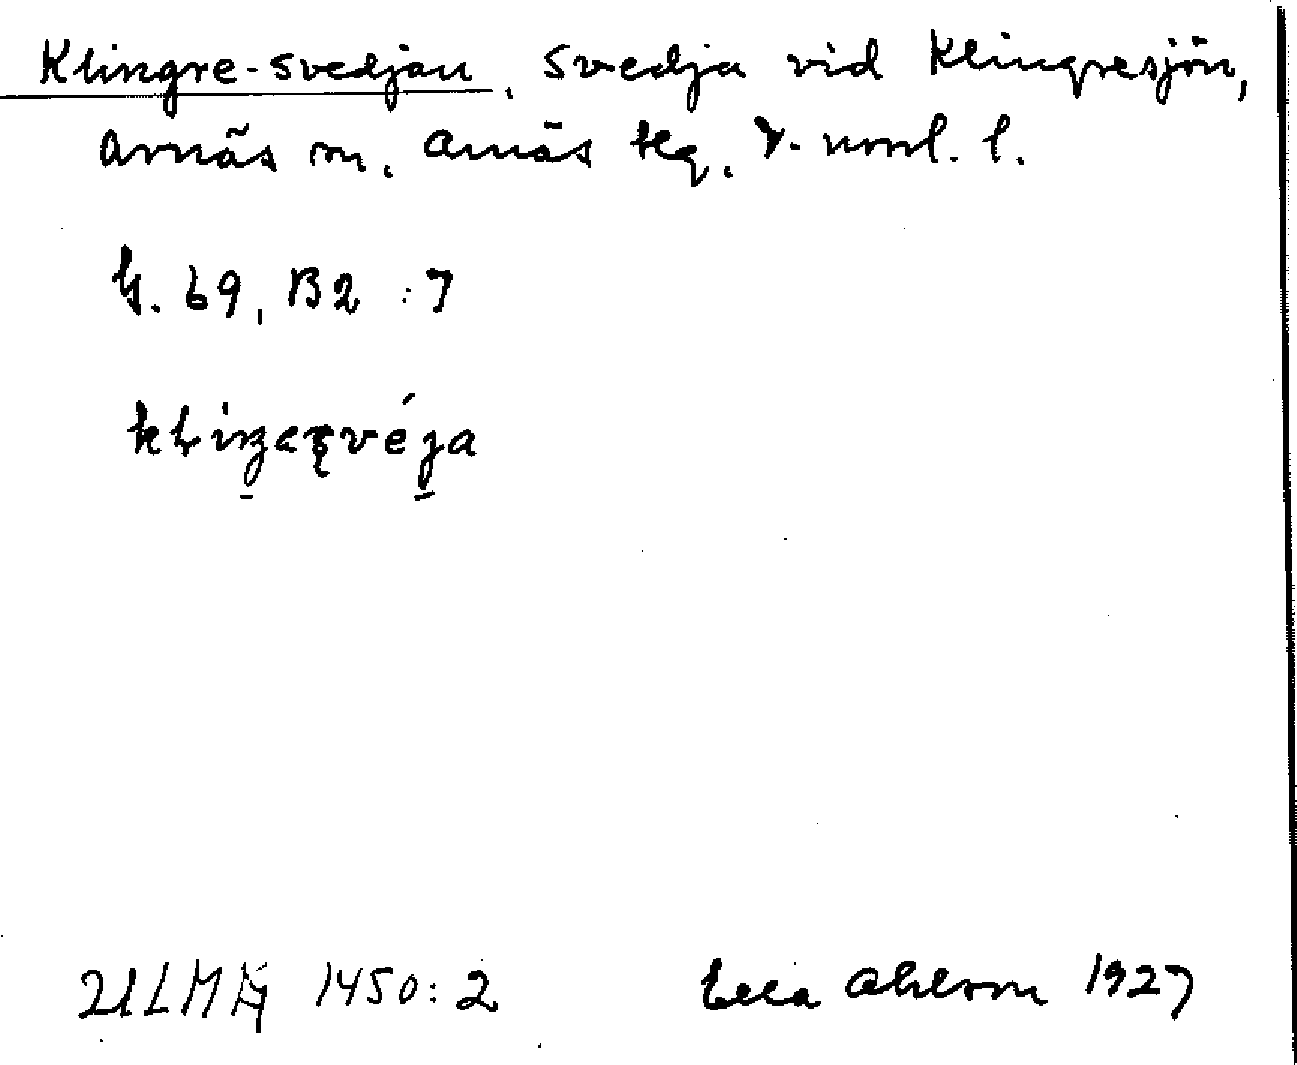 Klingre-svedjan, svedja vid Klingresjön,
Arnäs sn. Arnäs tg. V. norrl. l.
G. 69, B2 :7
ULMA 1450:2 Ella Ohlson 1927